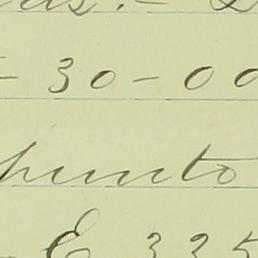 - 30-00
punto
- E 325